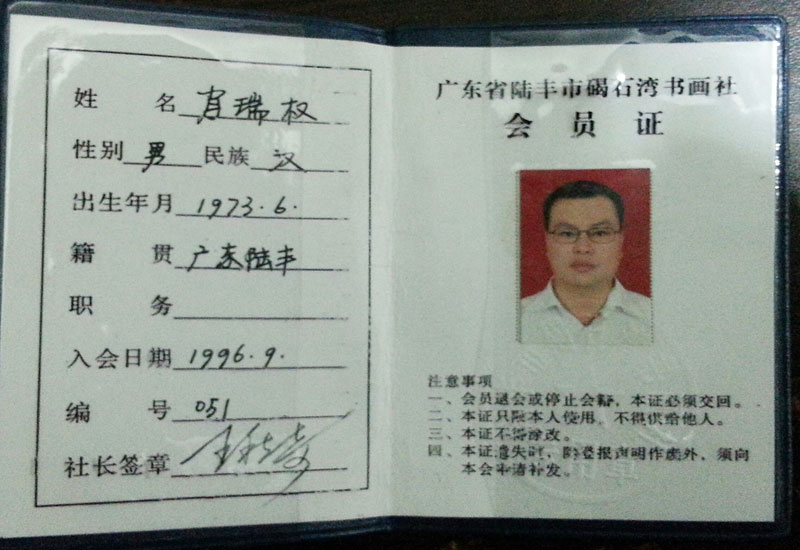 姓 名 肖瑞权
性别 男 民族 汉
出生年月 1973.6.
籍 贯 广东陆丰
职 务
入会日期 1996.9.
编 号 051
社长签章
广东省陆丰市碣石湾书画社
会 员 证
注意事项
一、会员退会或停止会籍，本证必须交回。
二、本证只限本人使用，不得供给他人。
三、本证不得涂改。
四、本证遗失时，除登报声明作废外，须向
本会申请补发。